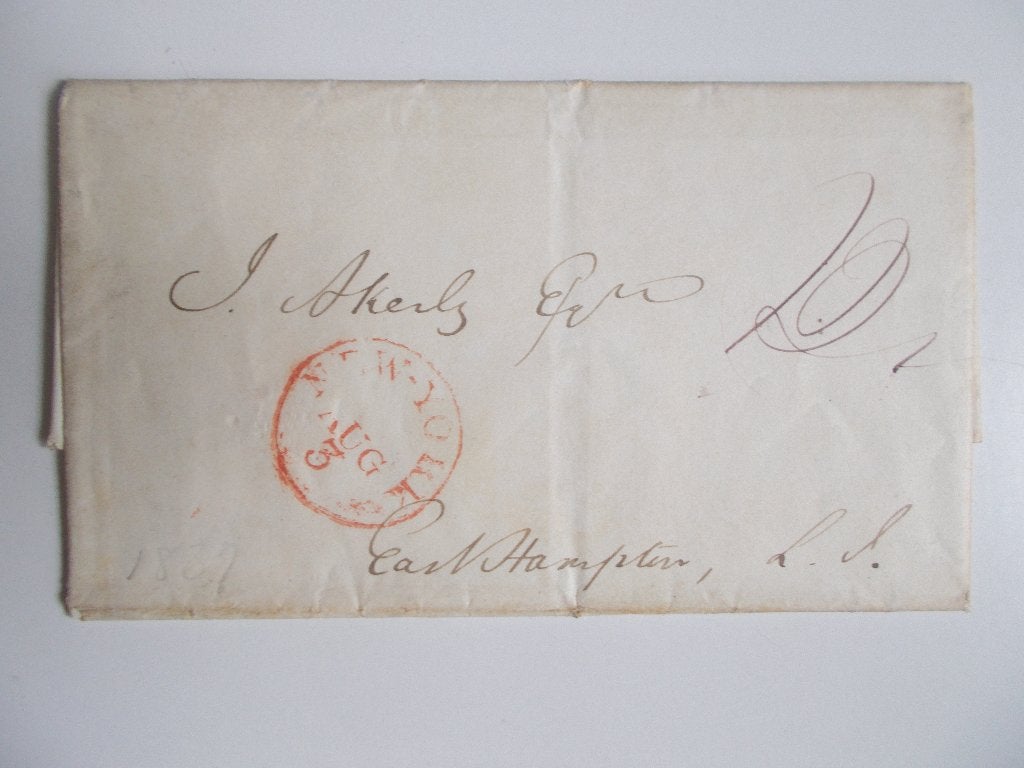 J. Akerly Esqr
NEW-YORK
AUG
3
East Hampton, L. I.